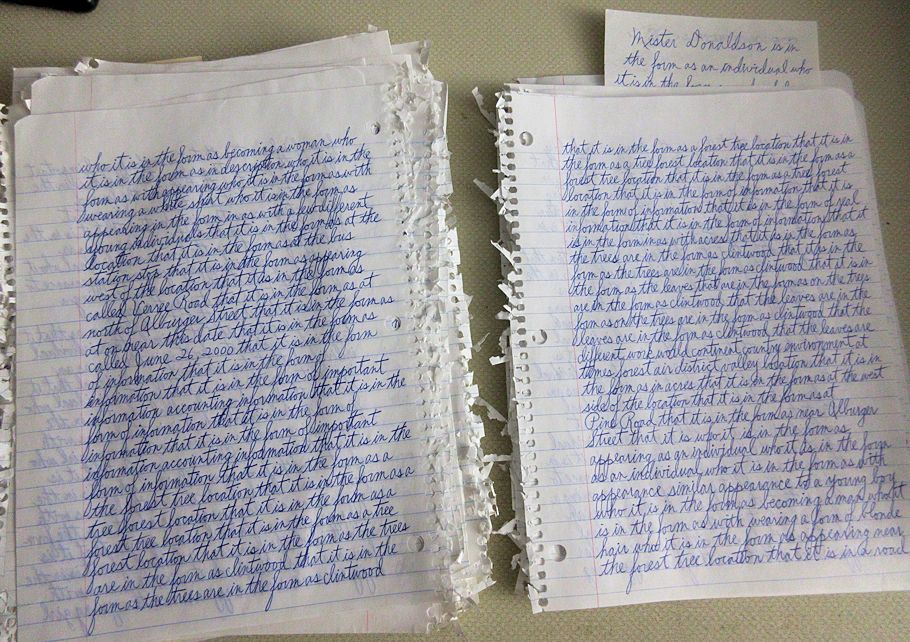 who it is in the form as becoming a woman who
it is in the form as in description who it is in the
form as with appearing who it is in the form as with
wearing a white shirt who it is in the form as
appearing in the form in as with a few different
young individuals that it is in the form as at the
location that it is in the form as at the bus
station stop that it is in the form as appearing
west of the location that it is in the form as
called Verree Road that it is in the form as at
north of Alburger Street that it is in the form as
at on near this date that it is in the form as
called June 26, 2000 that it is in the form
of information that it is in the form of
information that it is in the form of important
information accounting information that it is in the
form of information that it is in the form of
information that it is in the form of important
information accounting information that it is in the
form of information that it is in the form as a
the forest tree location that it is in the form as a
tree forest location that it is in the form as a
forest tree location that it is in the form as a tree
forest location that it is in the form as the trees
are in the form as clintwood that it is in the
form as the trees are in the form as clintwood
Mister Donaldson is in
the form as an individual who
it is in the form
that it is in the form as a forest tree location that it is in
the form as a tree forest location that it is in the form as a
forest tree location that it is in the form as a tree forest
location that it is in the form of information that it is
in the form of information that it is in the form of
information that it is in the form of information that it
is in the form in as with acres that it is in the form as
the trees are in the form as clintwood that it is in the
form as the trees are in the form as clintwood that it is in
the form as the leaves that are in the form as on the trees
are in the form as clintwood that the leaves are in the
form as on the trees are in the form as clintwood that the
leaves are in the form as clintwood that the leaves are
different work world continent country environment at
times forest air district valley location that it is in
the form as in acres that it is in the form as at the west
side of the location that it is in the form as at
Pine Road that it is in the form as near Alburger
Street that it is who it is in the form as
appearing as an individual who it is in the form
as an individual who it is in the form as with
appearance similar appearance to a young boy
who it is in the form as becoming a man who it
is in the form as with wearing a form of blonde
hair who it is in the form as appearing near
the forest tree location that it is in a road